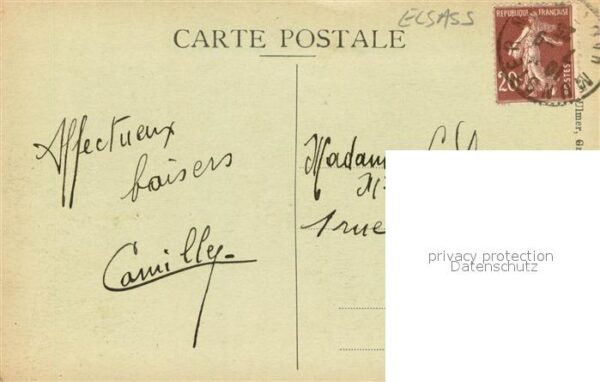 ELSASS
CARTE POSTALE
REPUBLIQUE FRANÇAISE
20c
POSTES
Ulmer,
Affectueux
baisers
Camilly
Madame
1 rue
privacy protection
Datenschutz